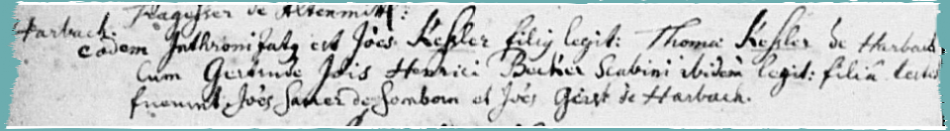 de Altenmitl:
Harbach. eodem Inthronizatq est Joes Keßler filiq legit: Thomæ Keßler de Harbach
cum Gertrude Jois Henrici Becker Scabini ibidem legit: filia testes
fuerunt Joes Sauer de Somborn et Joes Gerst de Harbach.